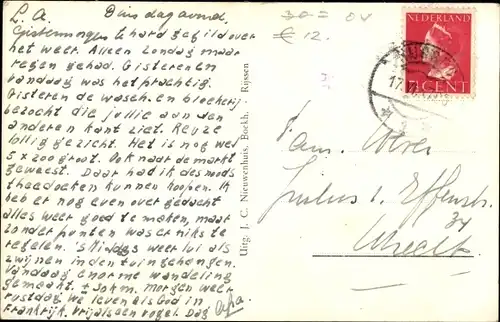 L. A. Dinsdagavond.
Gistermorgen hard gegild over
het weer. Alleen Zondag maar
regen gehad. Gisteren en
vandaag was het prachtig.
Gisteren de wasch- en bloekerij
bezocht die jullie aan den
anderen kant ziet. Reuze
lollig gezicht. Het is nog wel
5 x zoo groot. Ook naar de markt
geweest. Daar had ik des noods
theedoeken kunnen koopen. Ik
heb er nog even over gedacht
alles weer goed te maken, maar
zonder punten was er niks te
regelen. 's Middags weer lui als
zwijnen in den tuin gehangen.
Vandaag enorme wandeling
gemaakt. ± 30 km. Morgen weer
rustdag. We leven als God in
Frankrijk. Vrij als een vogel. Dag
Uitg. J. C. Nieuwenhuis, Boekh. Rijssen
€ 12.
NEDERLAND
CENT
17
Fam.
Julius v. Effenstr.
34
Utrecht